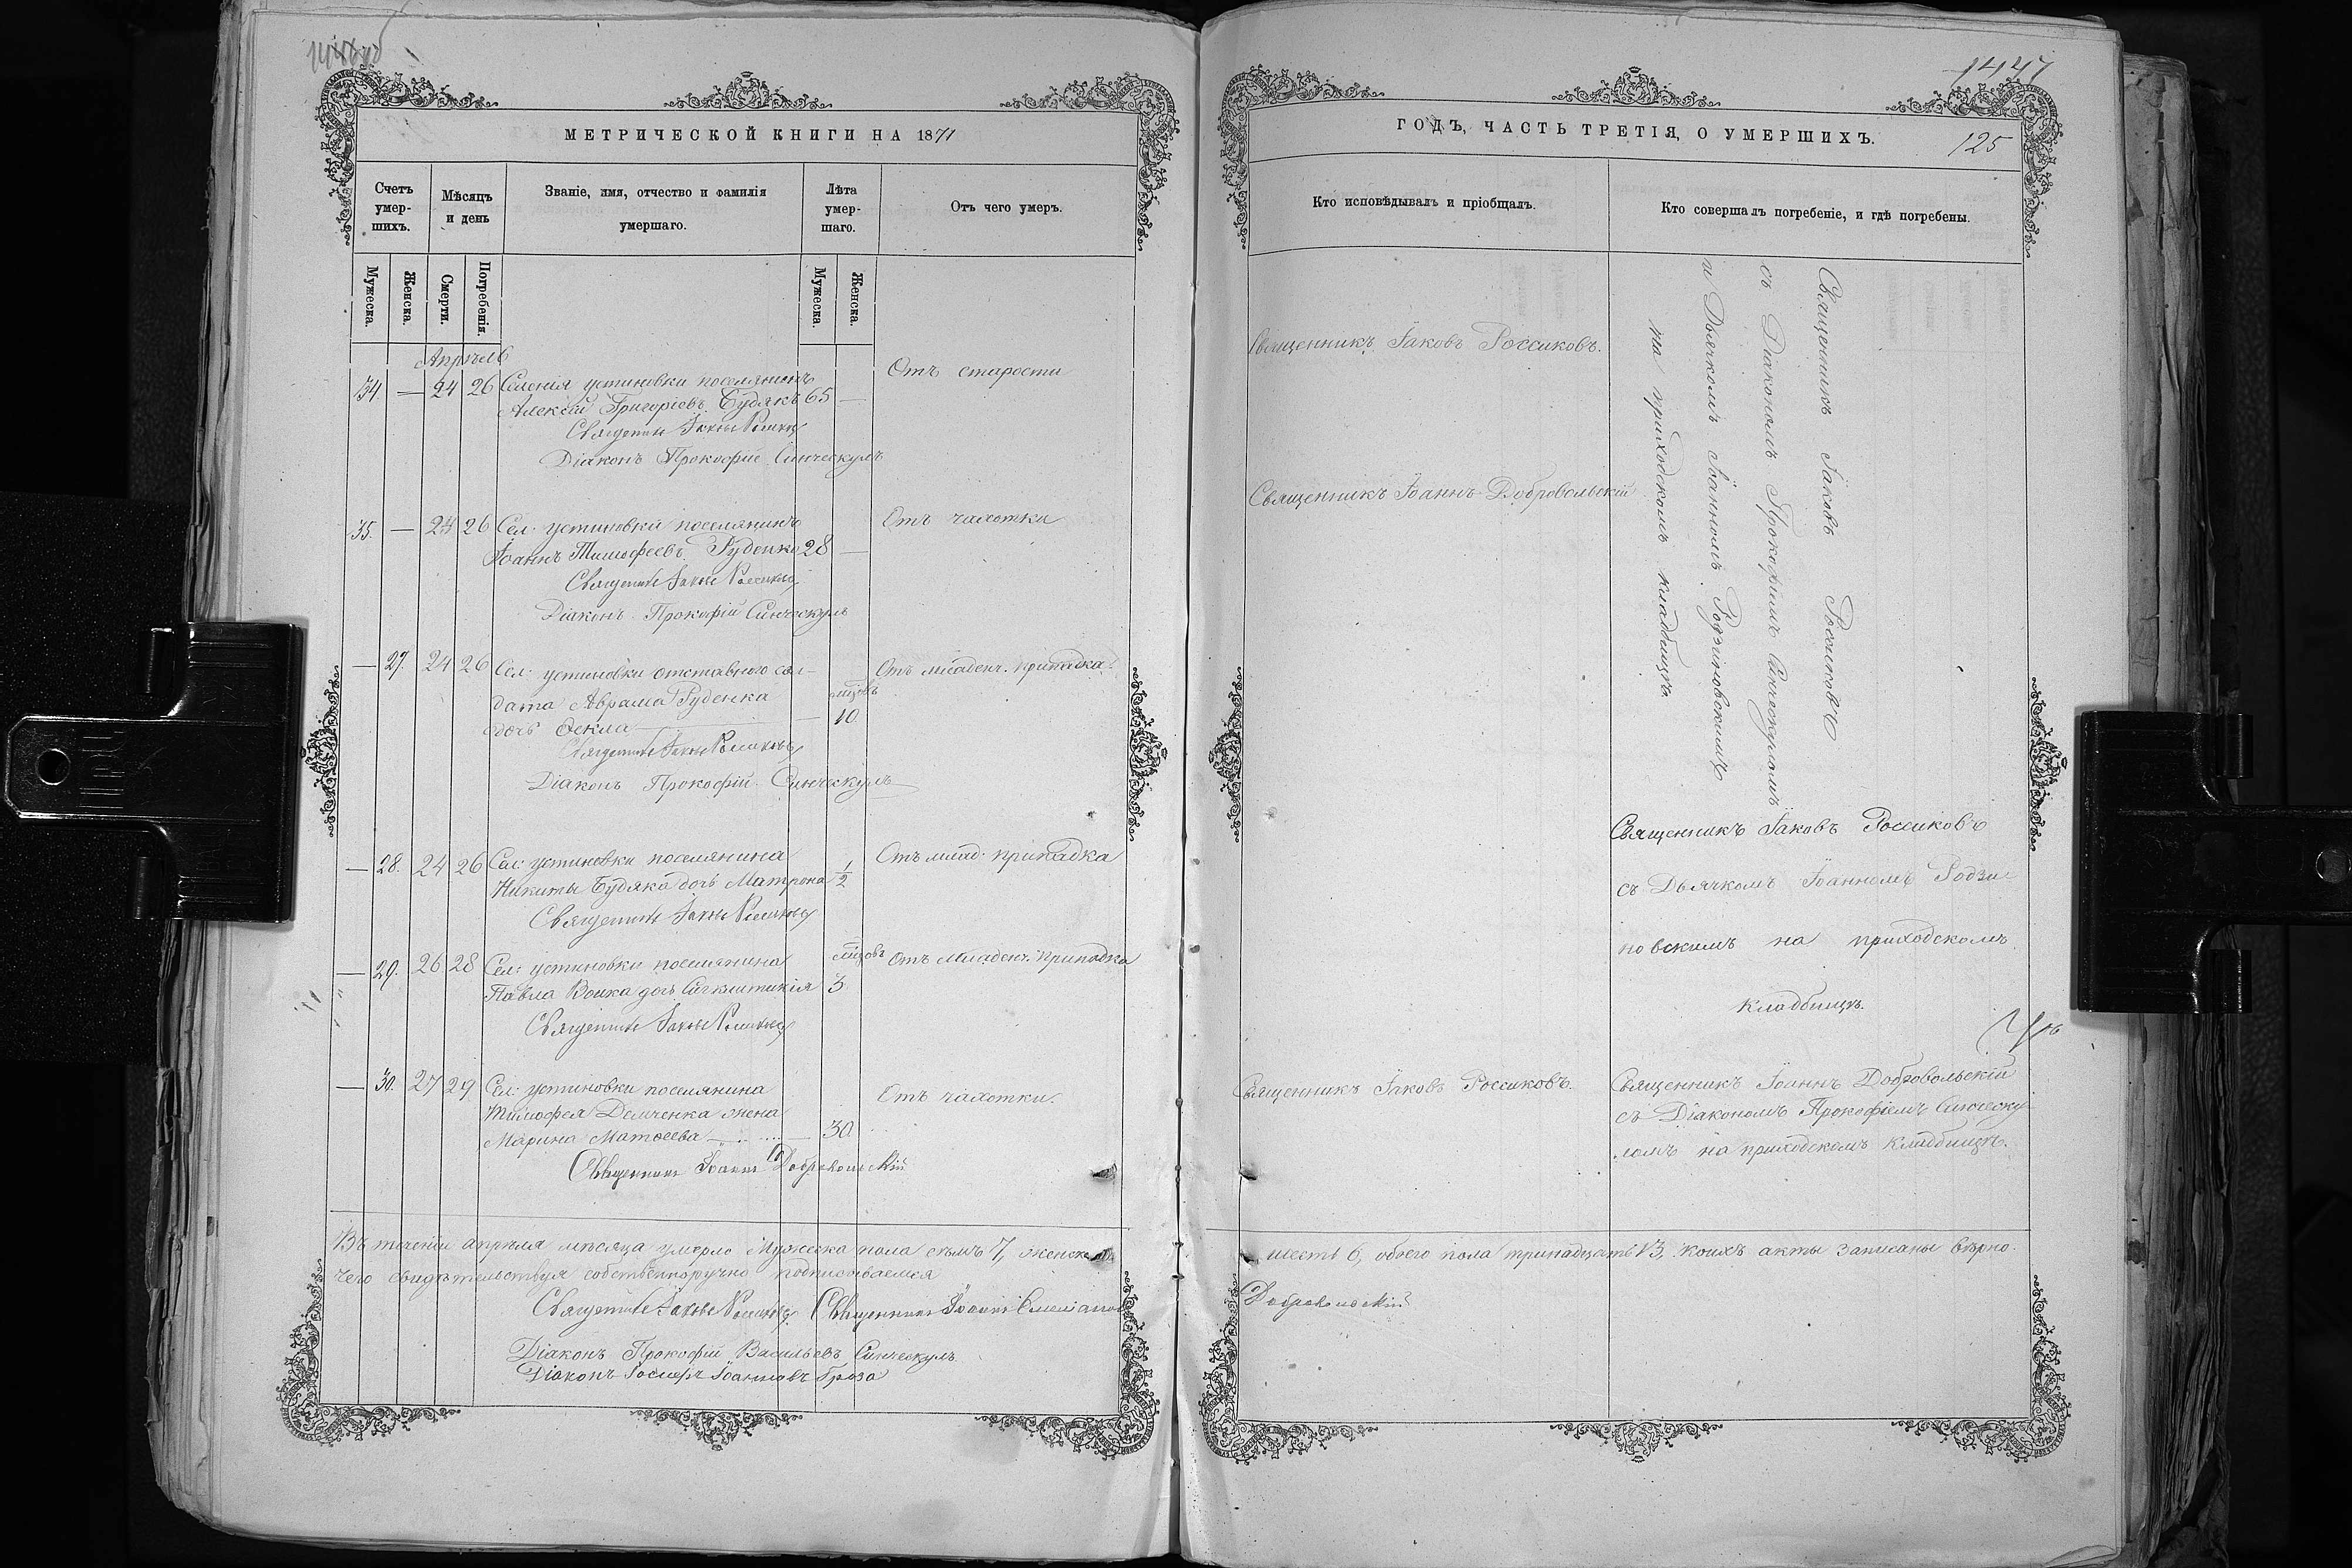 МЕТРИЧЕСКОЙ КНИГИ НА 1871
Счетъ умер- шихъ.
Мѣсяцъ и день
Званіе, имя, отчество и фамилія умершаго.
Лѣта умер- шаго.
Отъ чего умеръ.
Мужеска.
Женска.
Смерти.
Погребенія.
Мужеска.
Женска.
Апрѣль
34. — 24 26 Селенія устиновки поселянинъ Отъ старости
Алексѣй Григоріевъ Будякъ 65 —
Священникъ Іаковъ Россиковъ
Діаконъ Прокофій Синческулъ
35. — 24 26 Сел: устиновки поселянинъ Отъ чахотки
Іоаннъ Тимофеевъ Руденко 28 —
Священникъ Іаковъ Россиковъ
Діаконъ Прокофій Синческулъ
— 27. 24 26 Сел: устиновки отставного сол- Отъ младенч. припадка
дата Аврама Руденка мцовъ
дочь Ѳекла — 10
Священникъ Іаковъ Россиковъ
Діаконъ Прокофій Синческулъ
— 28. 24 26 Сел: устиновки поселянина 1/2 Отъ млад: припадка
Никиты Будяка дочь Матрона
Священникъ Іаковъ Россиковъ
— 29. 26 28 Сел: устиновки поселянина мцовъ Отъ младенч. припадка
Павла Вовка дочь 3
Священникъ Іаковъ Россиковъ
— 30. 27 29 Сел: устиновки поселянина Отъ чахотки.
Тимофея Демченка жена
Марина Матѳеева — 30
Священникъ Іоаннъ Добровольскій
Въ теченіи апрѣля мѣсяца умерло Мужеска пола семь 7, женска
чего свидѣтельствуя собственноручно подписываемся
Священникъ Іаковъ Россиковъ. Священникъ Іоаннъ Емеліановъ
Діаконъ Прокофій Васильевъ Синческулъ
Діаконъ Іосифъ Іоанновъ Гроза
1447
ГОДЪ, ЧАСТЬ ТРЕТІЯ, О УМЕРШИХЪ.
125
Кто исповѣдывалъ и пріобщалъ.
Кто совершалъ погребеніе, и гдѣ погребены.
Священникъ Іаковъ Россиковъ.
Священникъ Іоаннъ Добровольскій
Священникъ Іаковъ Россиковъ
съ Діакономъ Прокофіемъ Синческуломъ
и Дьячкомъ Іоанномъ Родзиновскимъ
на приходскомъ кладбищѣ
Священникъ Іаковъ Россиковъ
съ Дьячкомъ Іоанномъ Родзи-
новскимъ на приходскомъ
кладбищѣ.
Священникъ Іаковъ Россиковъ.
Священникъ Іоаннъ Добровольскій
съ Діакономъ Прокофіемъ Синческу-
ломъ на приходскомъ кладбищѣ.
шесть 6, обоего пола тринадцать 13, коихъ акты записаны вѣрно.
Добровольскій